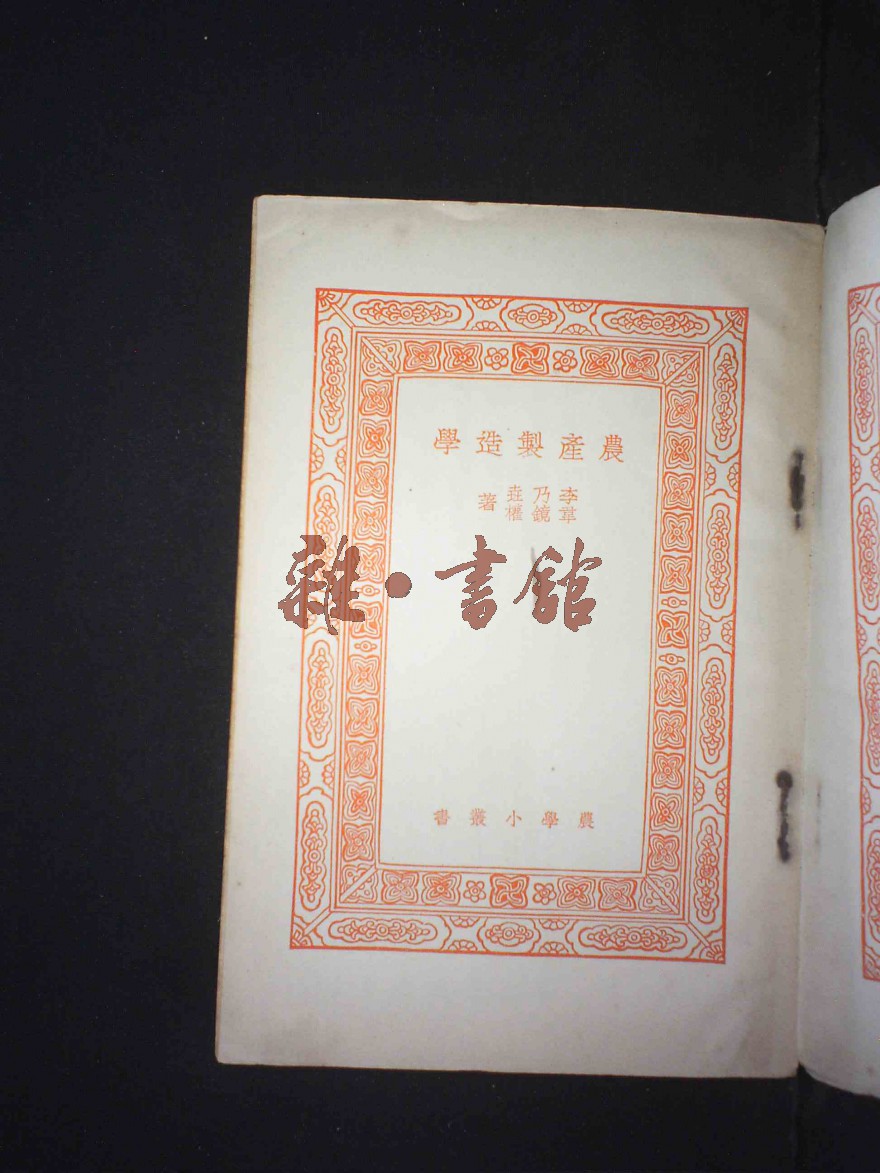 農產製造學
李乃垚
韋鏡權
著
雜·書館
農學小叢書